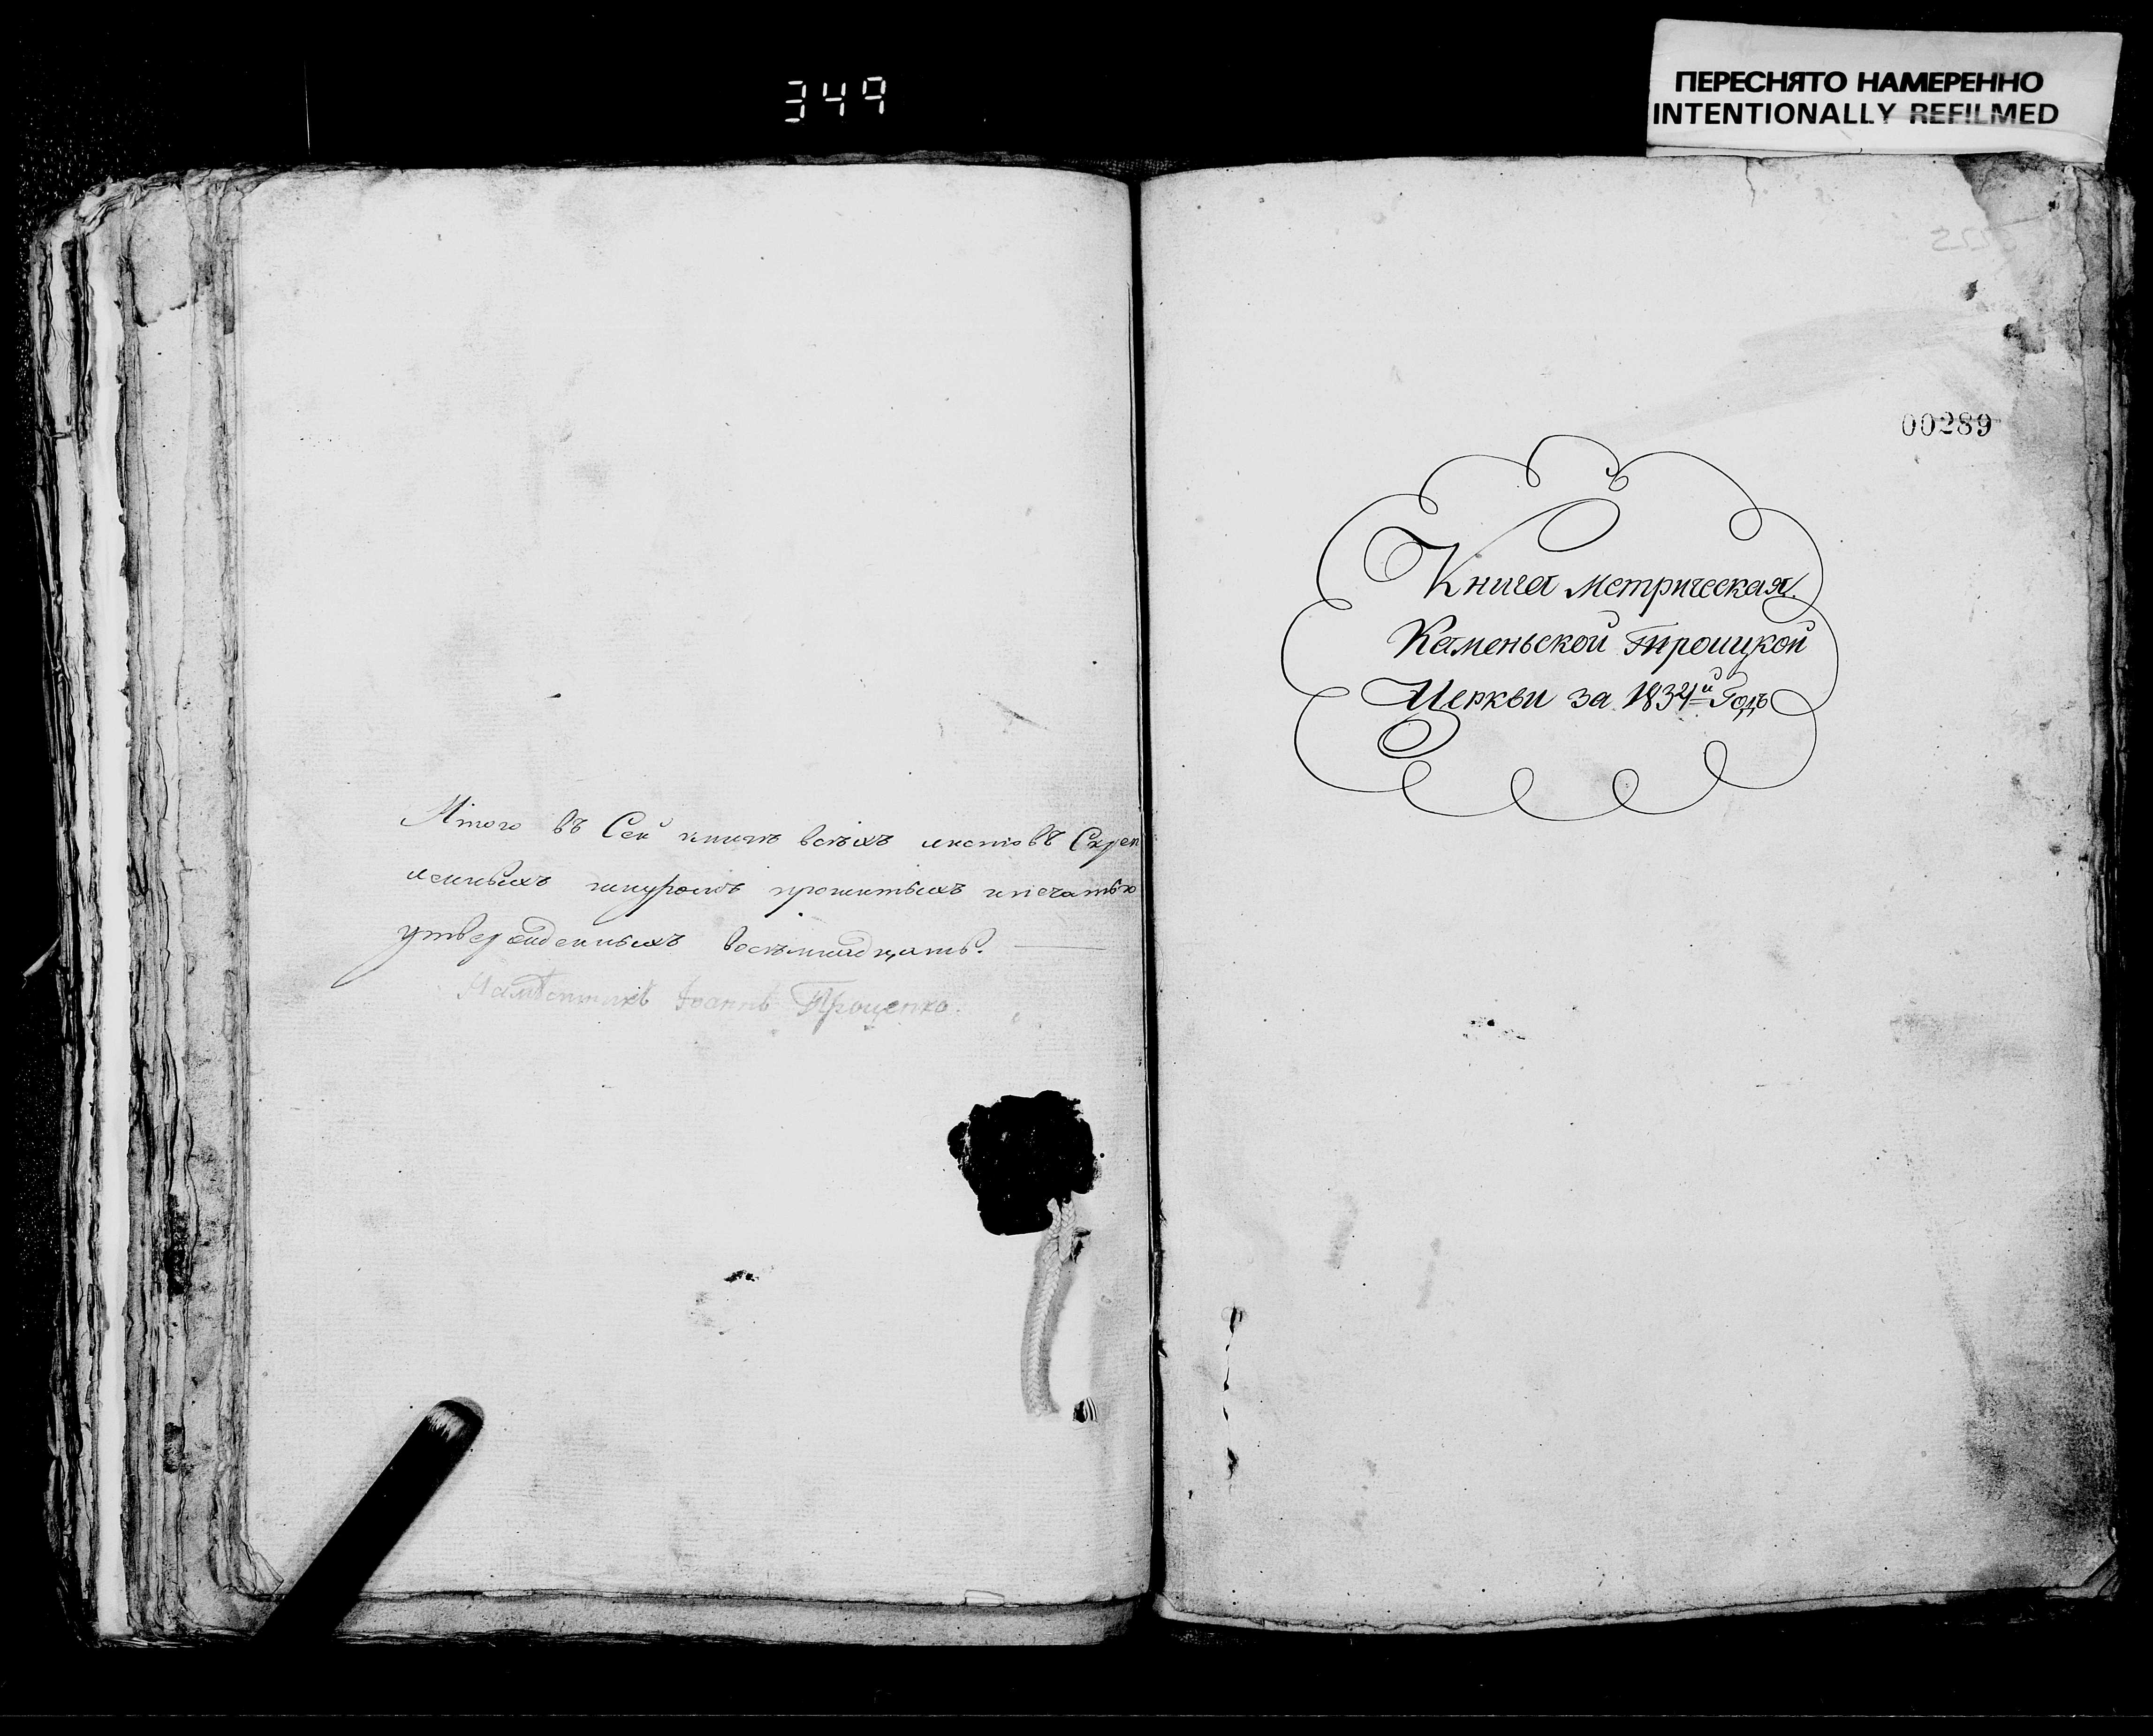 349
ПЕРЕСНЯТО НАМЕРЕННО
INTENTIONALLY REFILMED
Итого въ Сей книгѣ всѣхъ листовъ Скреп
ленныхъ шнуромъ прошитыхъ и печатью
утвержденныхъ восемнадцать.
Намѣстникъ Іоаннъ Проценко.
00289
Книга метрическая
Каменьской Троицкой
Церкви за 1834й Годъ